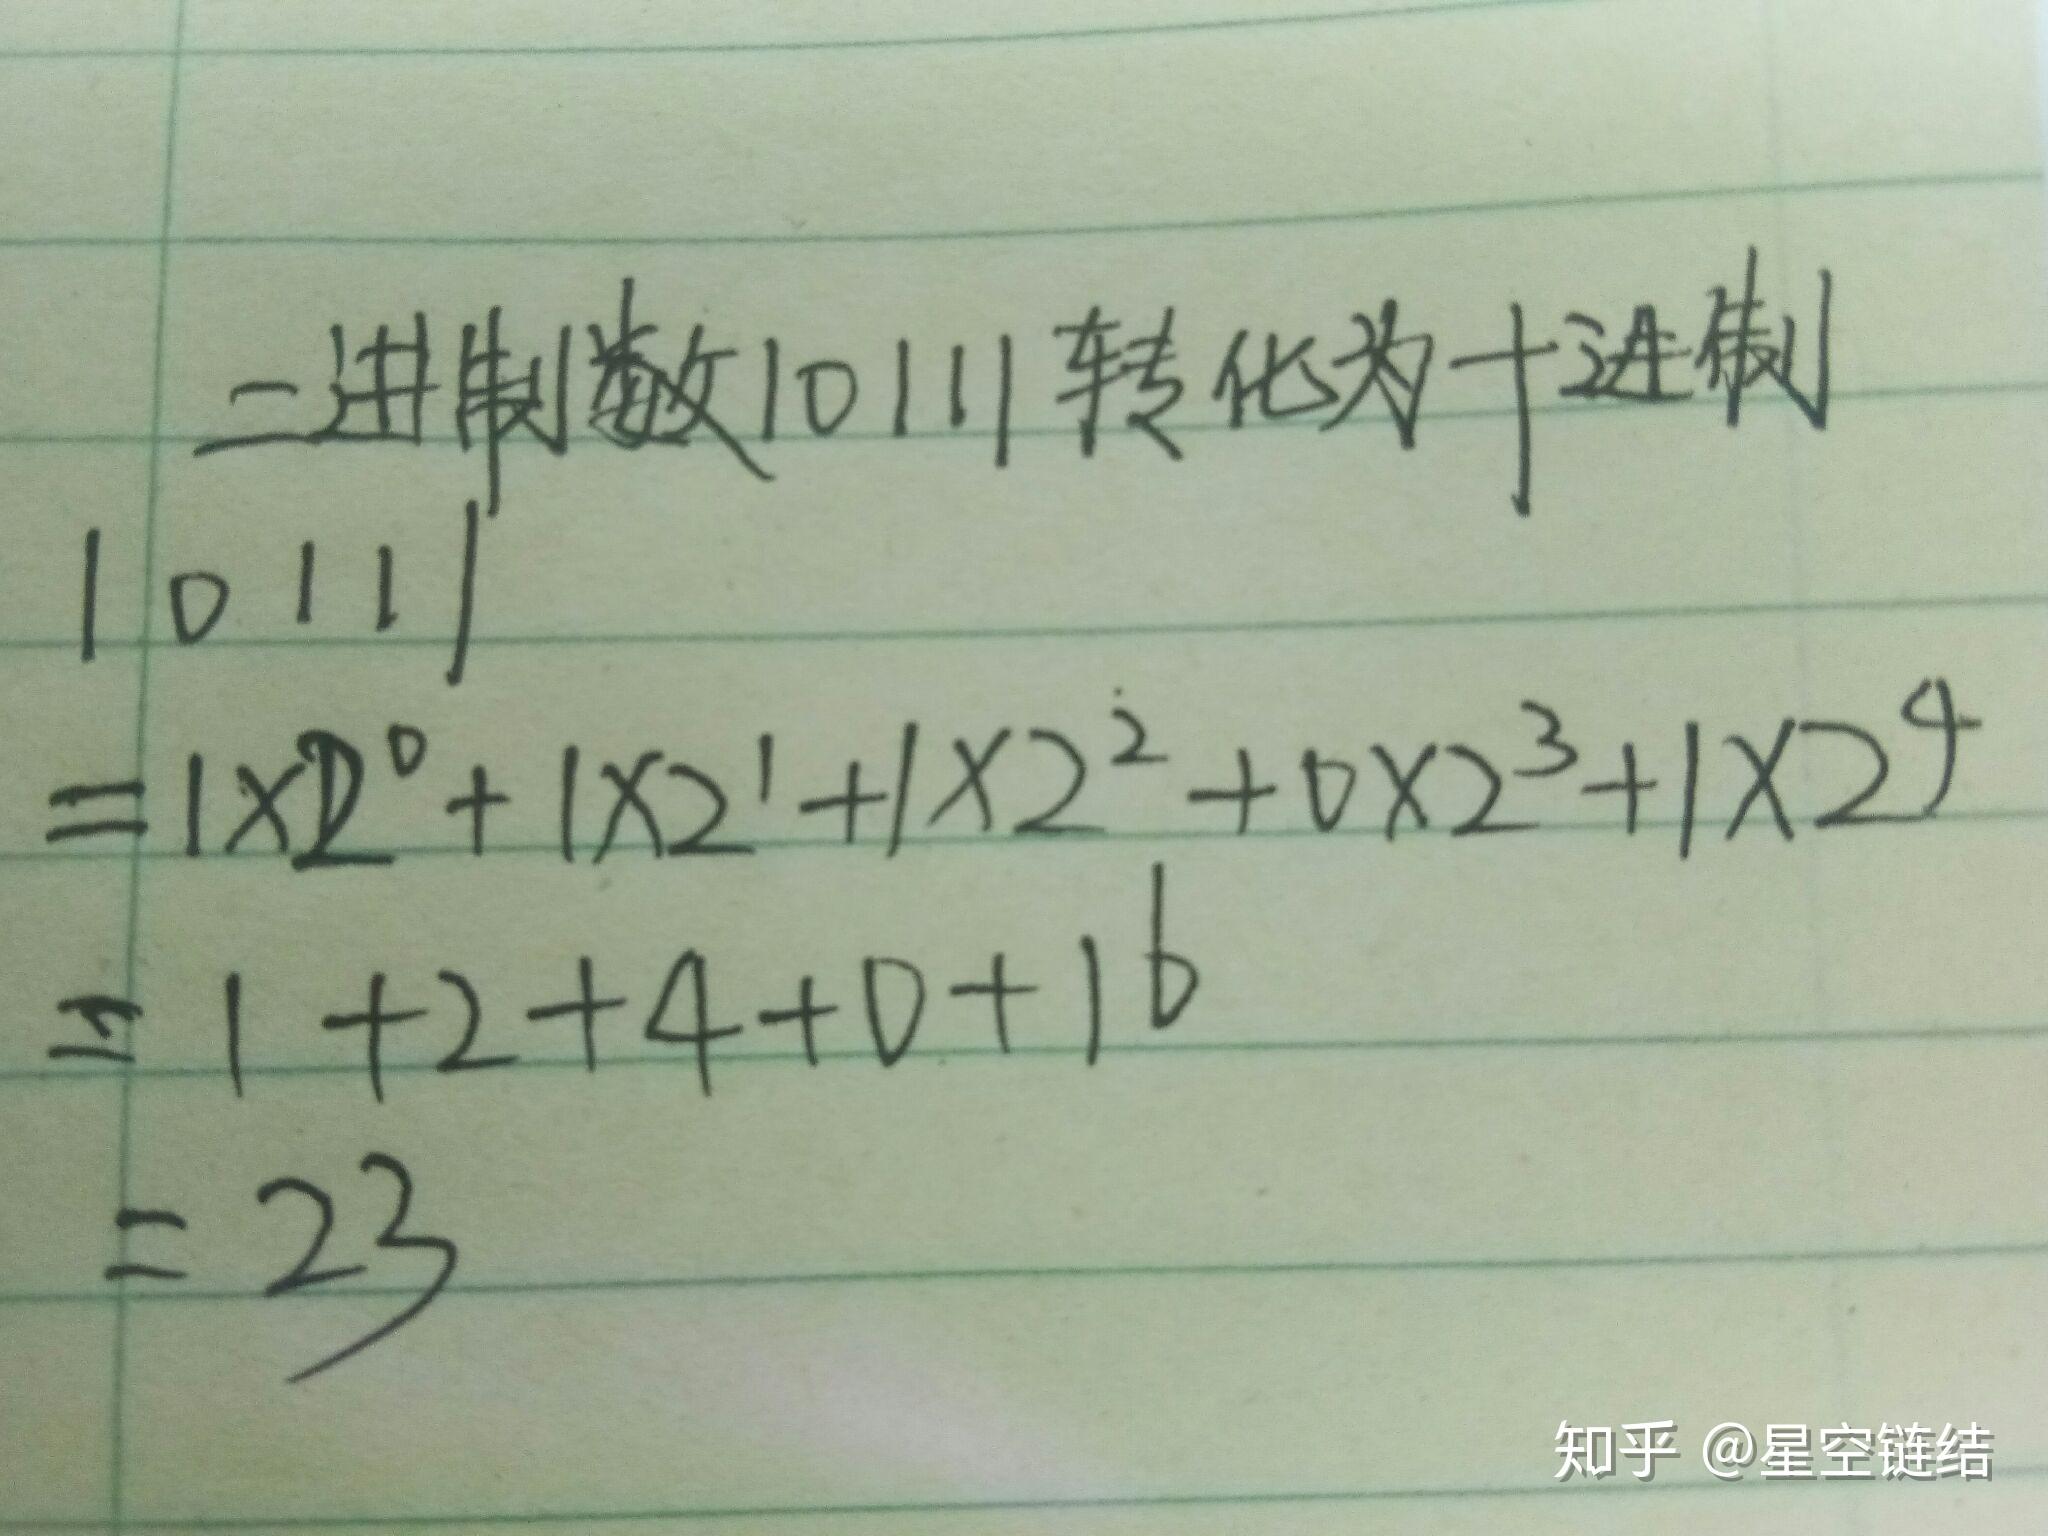 二进制数10111转化为十进制
10111
=1×2⁰+1×2¹+1×2²+0×2³+1×2⁴
=1+2+4+0+16
=23
知乎 @星空链结